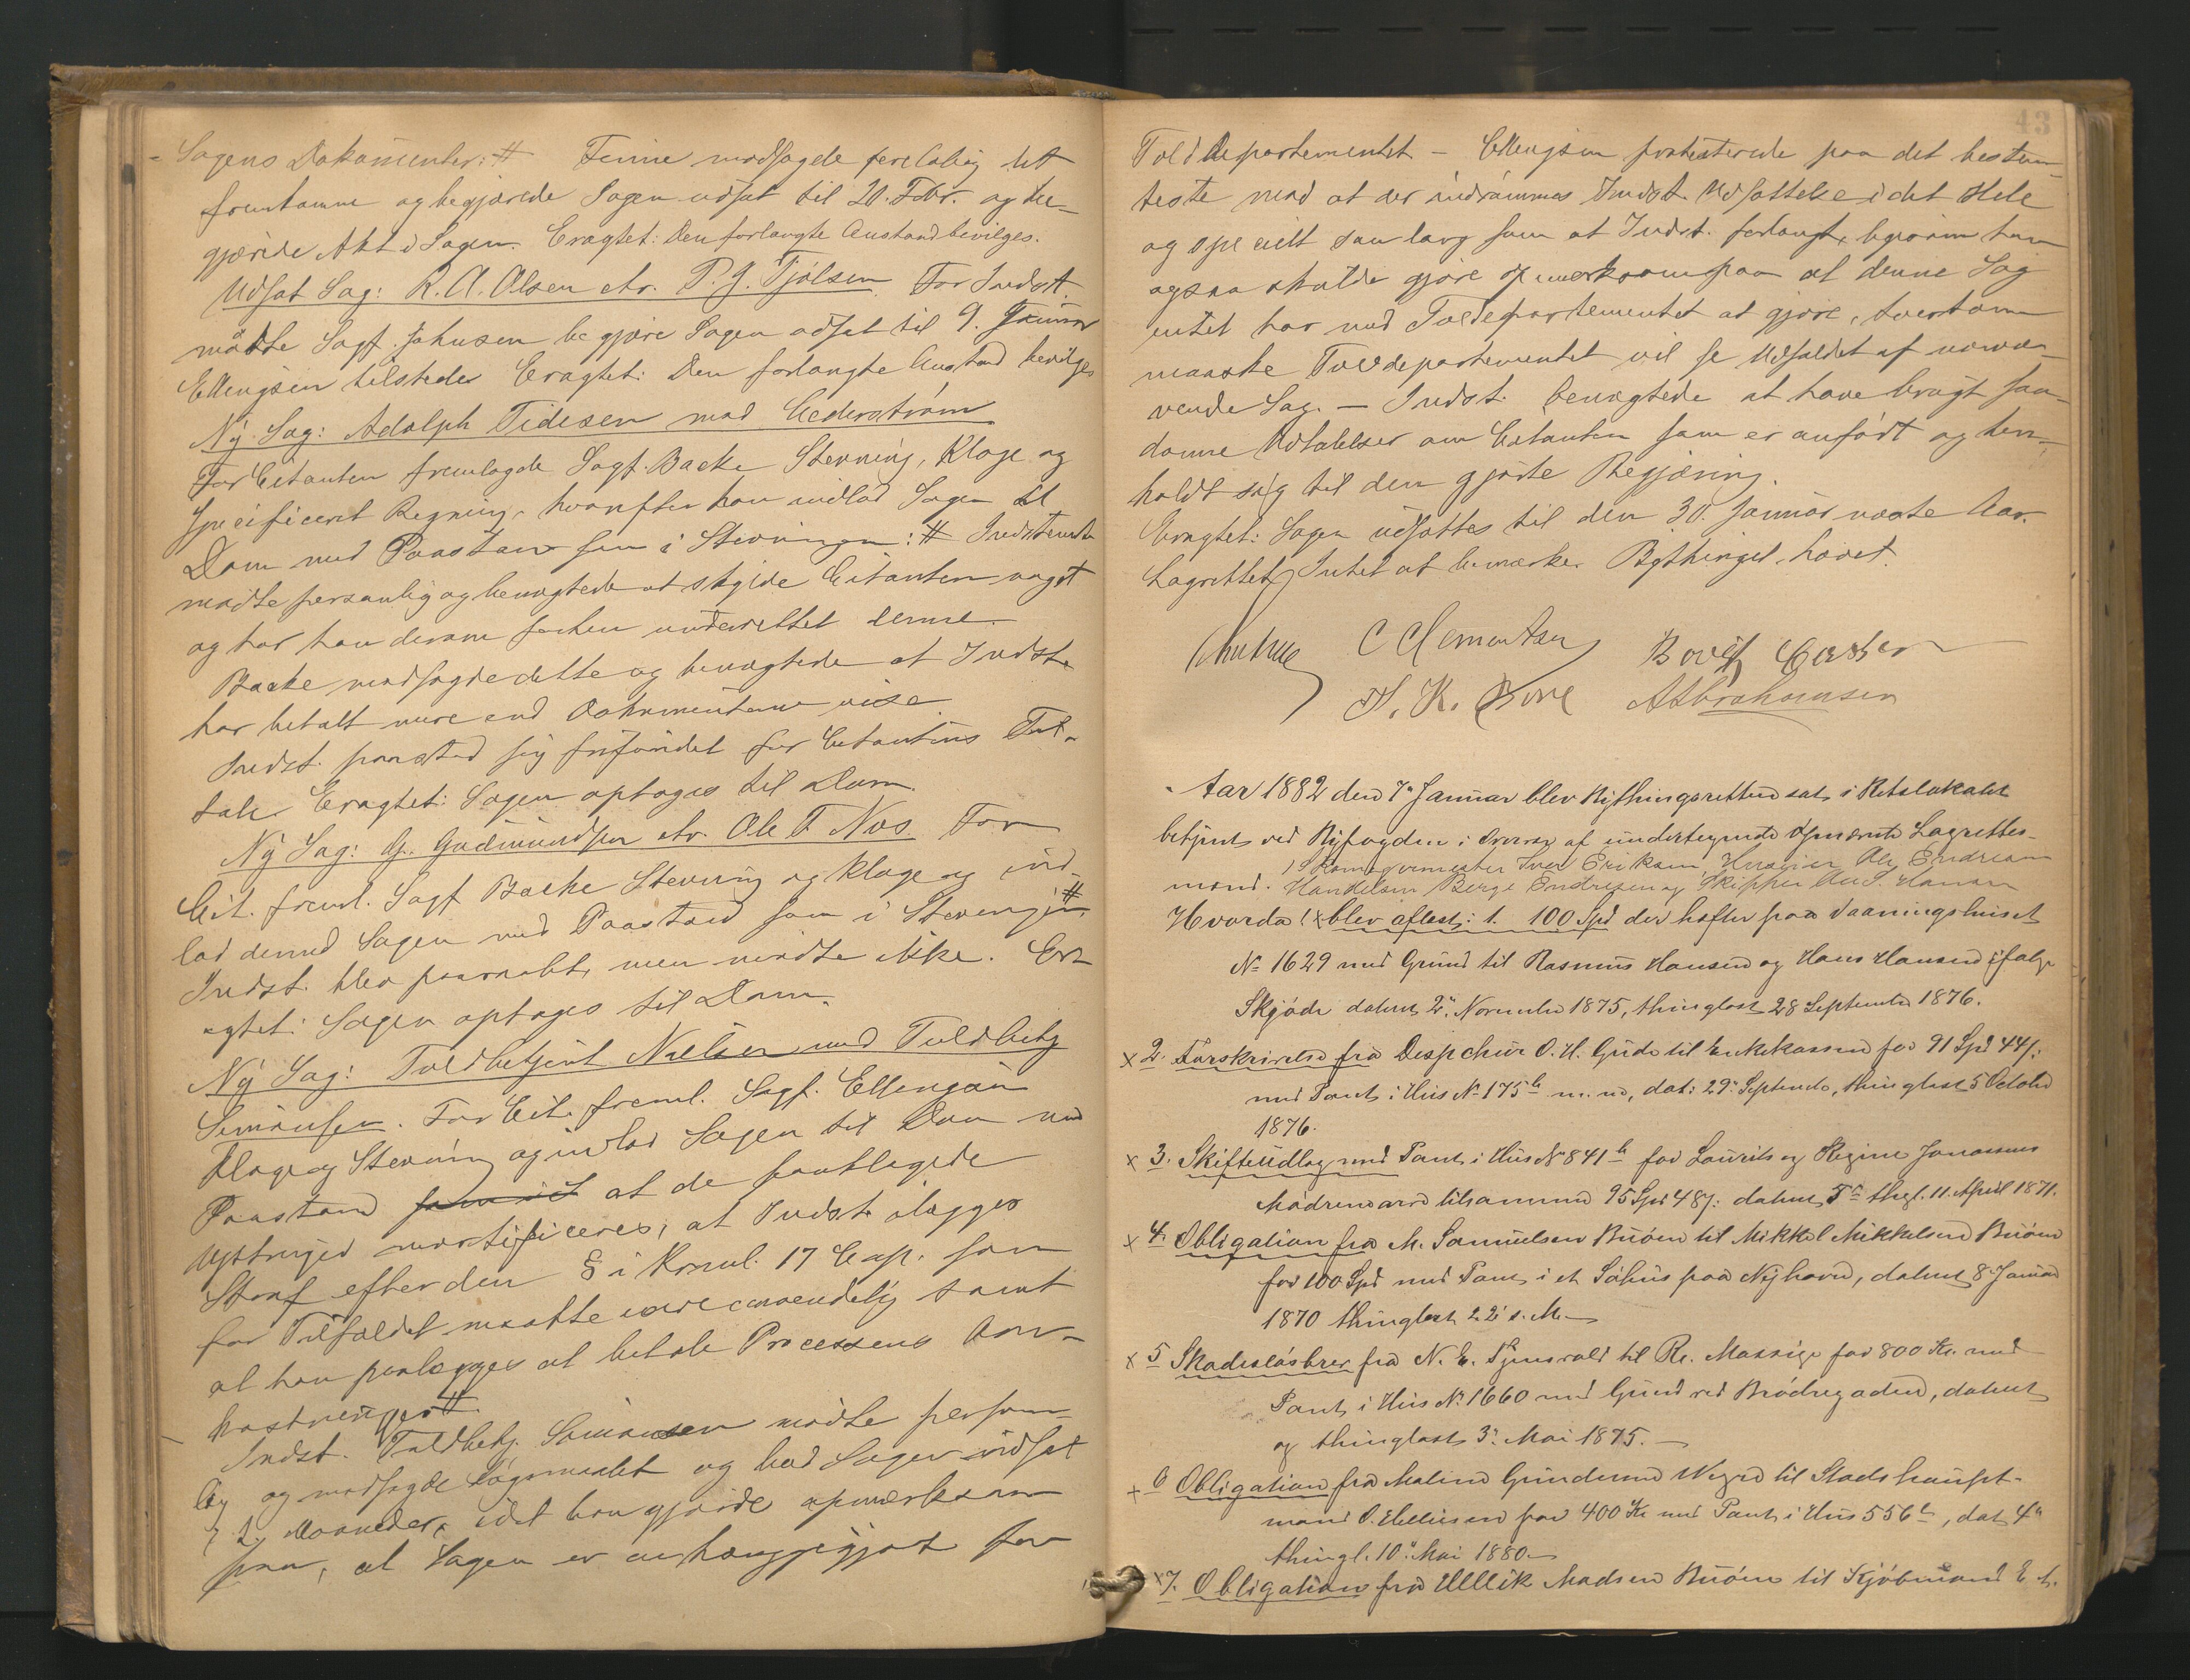 Sagens Dokumenter: # Finne modsagde foreløbig det
fremkomne og begjærede Sagen udsat til 20. Febr. og be-
gjærede Akt i Sagen. Eragtet: Den forlangte Anstand bevilges.
Udsat Sag: R. A. Olsen ctr. P. J. Tjölsen. For Indst.
mödte Sagf. Johnsen begjære Sagen udsat til 9. Januar
Ellengsen tilstede. Eragtet: Den forlangte Anstand bevilges
Ny Sag: Adolph Tidesen mod Cederström
For Citanten fremlagde Sagf. Backe Stevning, Klage og
Specificeret Regning, hvorefter han indlod Sagen til
Dom med Paastand som i Stevningen: # Indstevnte
mödte personlig og benegtede at skylde Citanten noget
og har han derom forhen underrettet denne
Backe modsagde dette og benegtede at Indst.
har betalt mere end Dokumenterne vise.
Indst. paastod sig frifundet for Citantens Til-
tale. Eragtet: Sagen optages til Dom.
Ny Sag: G. Gudmundsen ctr. Ole T. Næs For
Cit. freml. Sagf. Backe Stevning og Klage og ind-
lod dermed Sagen med Paastand som i Stevningen #
Indst. blev paaraabt, men mödte ikke. Er-
agtet: Sagen optages til Dom.
Ny Sag: Toldbetjent Nielsen mod Toldbetj
Simonsen. For Cit. freml. Sagf. Ellengsen
Klage og Stevning og indlod Sagen til Dom med
Paastand som i at de paaklagede
Yttringer mortificeres, at Indst. ilægges
Straf efter den § i Krml. 17 Cap. som
for Tilfældet maatte være anvendelig samt
at han paalægges at betale Processens Om-
kostninger #.
Indst. Toldbetj. Simonsen mödte person-
lig og modsagde Sögsmaalet og bad Sagen udsat
i 2 Maaneder, idet han gjorde opmærksom
paa, at Sagen er anhængiggjort for
43
Tolddepartementet – Ellengsen protesterede paa det bestem-
teste mod at der indrömmes Indst. Udsættelse i det Hele
og specielt saa lang som af Indst. forlangt, ligesom han
ogsaa skulde gjöre opmærksom paa at denne Sag
intet har med Tolddepartementet at gjöre, tvertom
maaske Tolddepartementet vil se Udfaldet af nærvæ-
rende Sag. – Indst. benegtede at have brugt saa-
danne Udtalelser om Citanten som er anfört og hen-
holdt sig til den gjorte Begjæring.
Eragtet: Sagen udsættes til den 30. Januar næste Aar.
Lagrettet Intet at bemærke. Bythinget hævet.
C Clementsen
H. K. Bore A Abrahamsen
Aar 1882 den 7de Januar blev Bythingsretten sat i Retslokalet
betjent ved Byfogden i Overvær af undertegnede opnævnte Lagrettes-
Skomagermester Iver Eriksen, Ole Endresen
mænd. Handelsm Berge Endresen og Skipper Hansen
Hvorda blev aflæst: 1. 100 Spd der hefter paa Vaaningshuset
No 1629 med Grund til Rasmus Hansen og Hans Hansen ifølge
Skjöde dateret 2. November 1875, thinglæst 28 September 1876.
x 2. Forskrivelse fra Dispchör O. H. Gude til Enkekassen for 91 Spd 44 s.
med Pant i Hus No 175b m. m., dat: 29. September, thinglæst 5 October
1876.
x 3. Skifteudlæg med Pant i Hus No 841b for Laurits og Regine Jonassens
Mödrenearv tilsammen 95 Spd 48 s: dateret 5te thgl. 11. April 1871.
x 4. Obligation fra M. Samuelsen Buöen til Mikkel Mikkelsen Buöen
for 100 Spd med Pant i et Söhus paa Nyhavn, dateret 8. Januar
1870 thinglæst 22. s. M. –
x 5 Skadeslösbrev fra N. E. Tjensvold til R. Massige for 800 Kr. med
Pant i Hus No 1660 med Grund ved Brödregaden, dateret
og thinglæst 3. Mai 1875. –
+ 6 Obligation fra Malene Gundersen Wegre til Stadshaupt-
mand O. Helliesen for 400 Kr med Pant i Hus 556b, dat. 4de
thingl. 10. Mai 1880. –
x 7. Obligation fra Ullrik Madsen Buöen til Kjöbmand E.